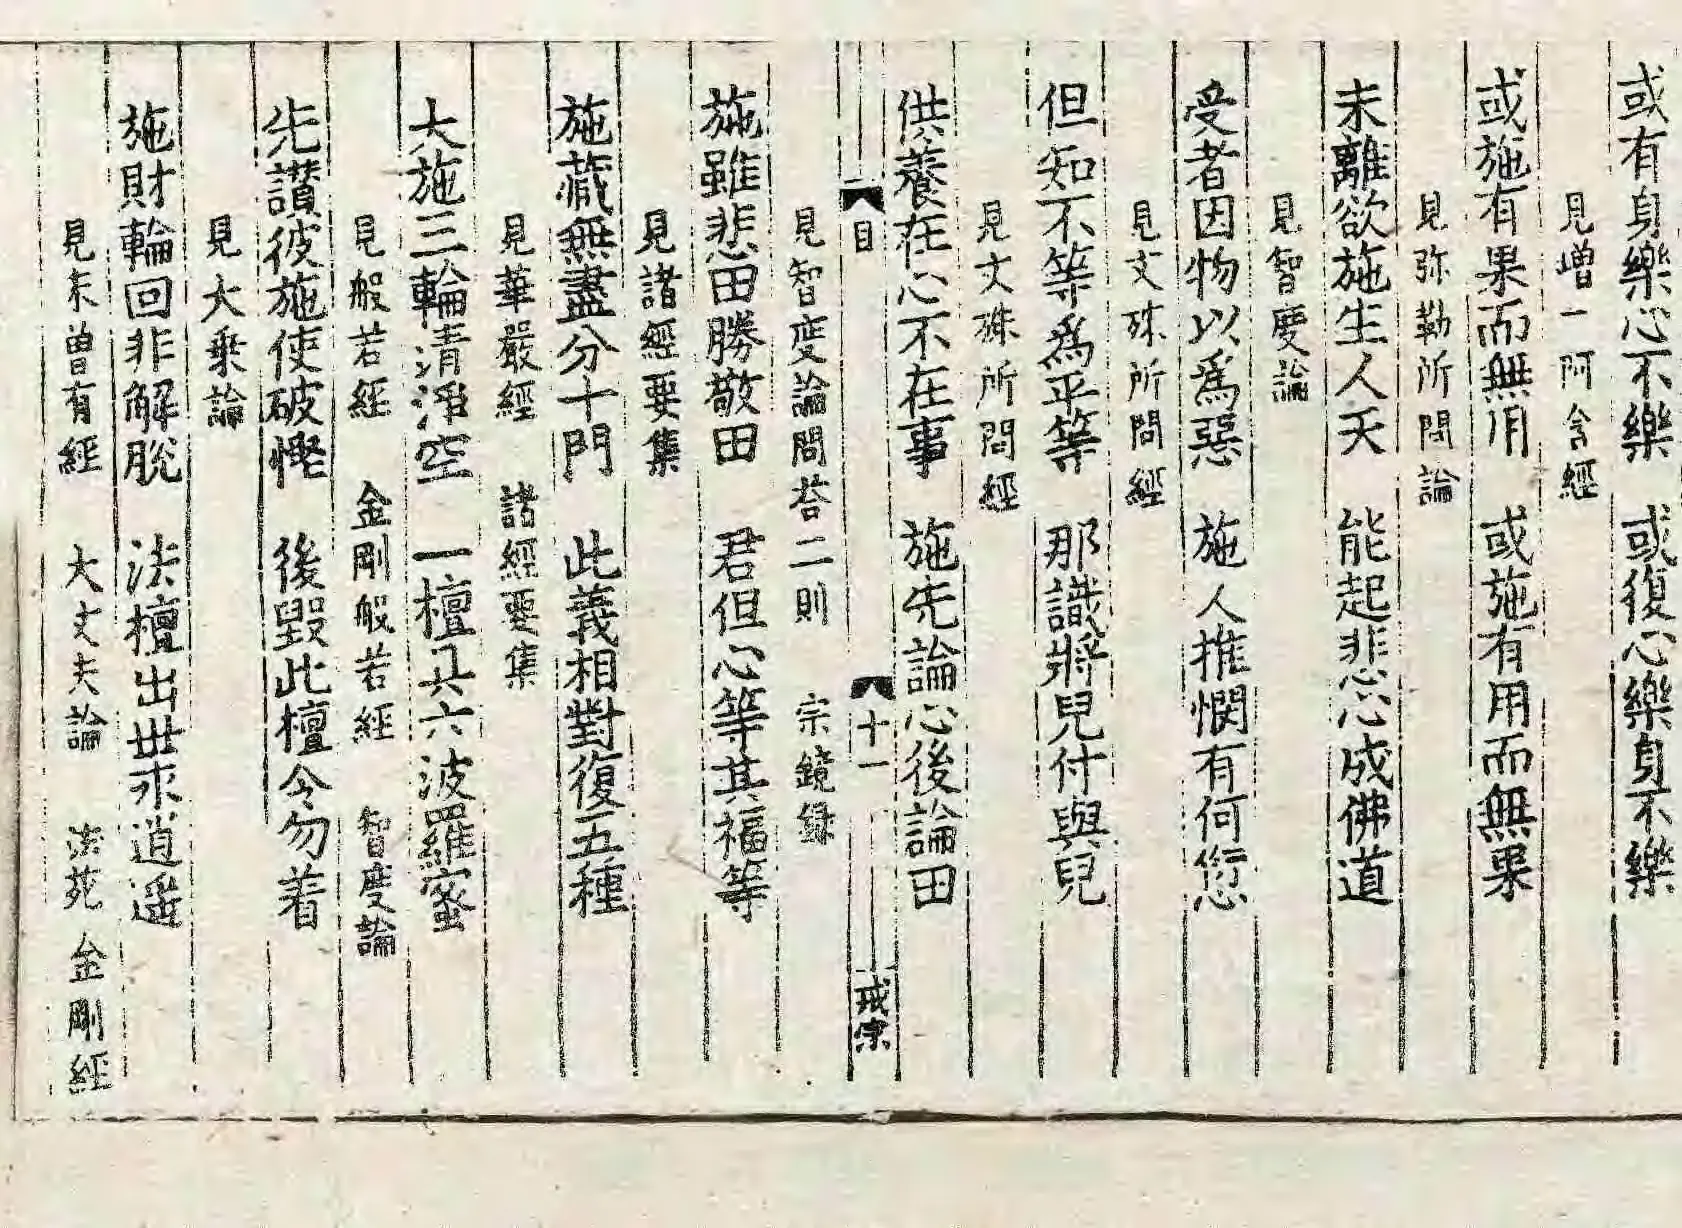 或有身樂心不樂　或復心樂身不樂
見增一阿含經
或施有果而無用　或施有用而無果
見弥勒所問論
未離欲施生人天　能起悲心成佛道
見智度論
受者因物以為惡　施人推憫有何愆
見文殊所問經
但知不等為平等　那識將兒付與兒
見文殊所問經
供養在心不在事　施先論心後論田
目　十一　戒宗
見智度論問荅二則　宗鏡録
施雖悲田勝敬田　君但心等其福等
見諸經要集
施藏無盡分十門　此義相對復五種
見華嚴經　諸經要集
大施三輪清淨空　一檀具六波羅蜜
見般若經　金剛般若經　智度論
先讃彼施使破慳　後毀此檀令勿着
見大乘論
施財輪回非解脫　法檀出世永逍遥
見未曽有經　大丈夫論　法苑　金剛經